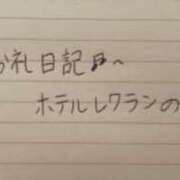 お礼日記〜
ホテルレクランの